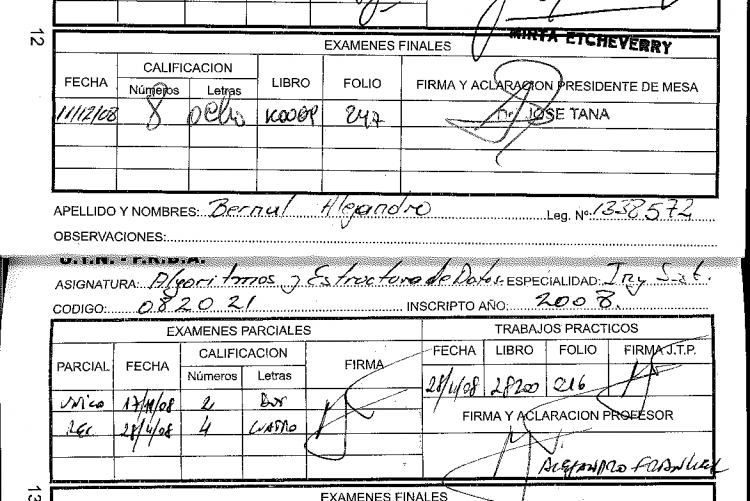 MIRTA ETCHEVERRY
12
EXAMENES FINALES
FECHA CALIFICACION LIBRO FOLIO FIRMA Y ACLARACION PRESIDENTE DE MESA
Números Letras
11/12/08 8 ocho 247 Dr. JOSE TANA
APELLIDO Y NOMBRES: Bernal Alejandro Leg. Nº 1338572
OBSERVACIONES:
U.T.N. - F.R.B.A.
ASIGNATURA: Algoritmos y Estructura de Datos ESPECIALIDAD: Ing Sist.
CODIGO: 082021 INSCRIPTO AÑO: 2008.
EXAMENES PARCIALES TRABAJOS PRACTICOS
PARCIAL FECHA CALIFICACION FIRMA FECHA LIBRO FOLIO FIRMA J.T.P.
Números Letras
28/11/08 28200 216
Unico 17/11/08 2 Dos
FIRMA Y ACLARACION PROFESOR
REC 28/11/08 4 CUATRO
ALEJANDRO
13
EXAMENES FINALES